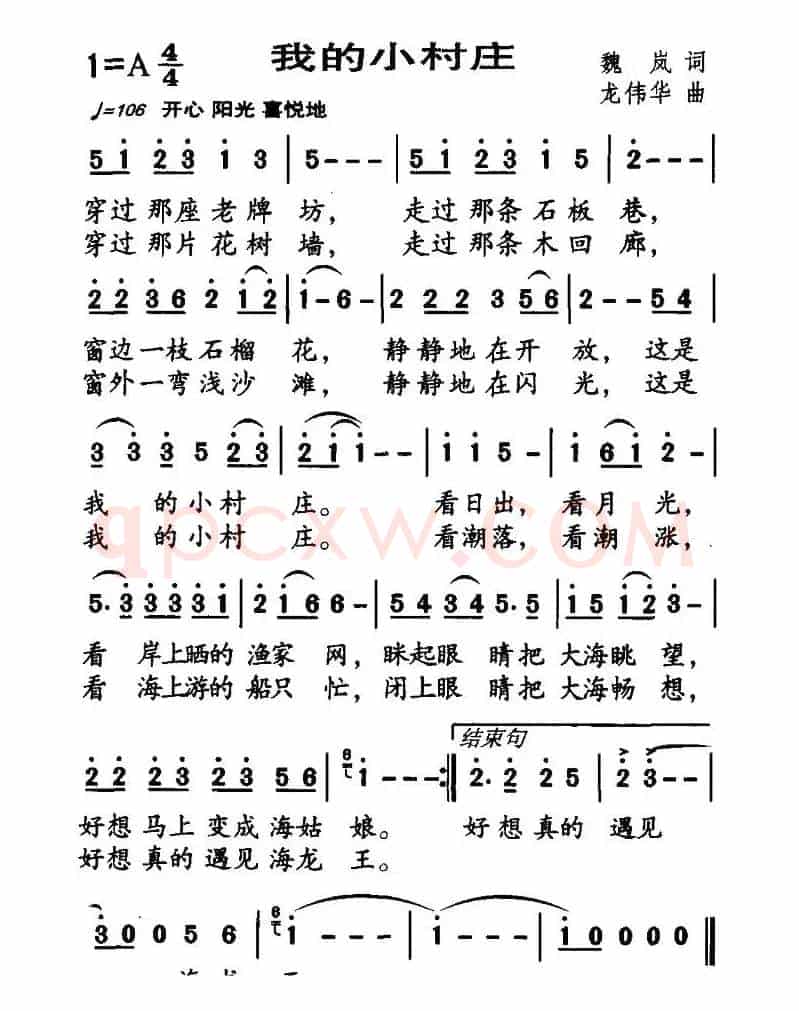 1=A 4/4 我的小村庄 魏 岚 词
龙伟华 曲
♩=106 开心 阳光 喜悦地
5 1 2 3 1 3 | 5 - - - | 5 1 2 3 1 5 | 2 - - - |
穿过那座老牌 坊， 走过那条石板 巷，
穿过那片花树 墙， 走过那条木回 廊，
2 2 3 6 2 1 2 | 1 - 6 - | 2 2 2 2 3 5 6 | 2 - 5 4 |
窗边一枝石榴 花， 静静地在开 放， 这是
窗外一弯浅沙 滩， 静静地在闪 光， 这是
3 3 3 5 2 3 | 2 1 1 - - | 1 1 5 - | 1 6 1 2 - |
我 的小村 庄。 看日出， 看月 光，
我 的小村 庄。 看潮落， 看潮 涨，
qpcxw.COM
5. 3 3 3 3 1 | 2 1 6 6 - | 5 4 3 4 5. 5 | 1 5 1 2 3 - |
看 岸上晒的 渔家 网， 眯起眼 睛把 大海眺 望，
看 海上游的 船只 忙， 闭上眼 睛把 大海畅 想，
结束句
2 2 2 2 2 3 5 6 | 6 1 - - - :| 2. 2 2 5 | 2 3 - - |
好想 马上 变成 海姑 娘。 好想真的 遇见
好想 真的 遇见 海龙 王。
3 0 0 5 6 | 6 1 - - - | 1 - - - | 1 0 0 0 0 ||